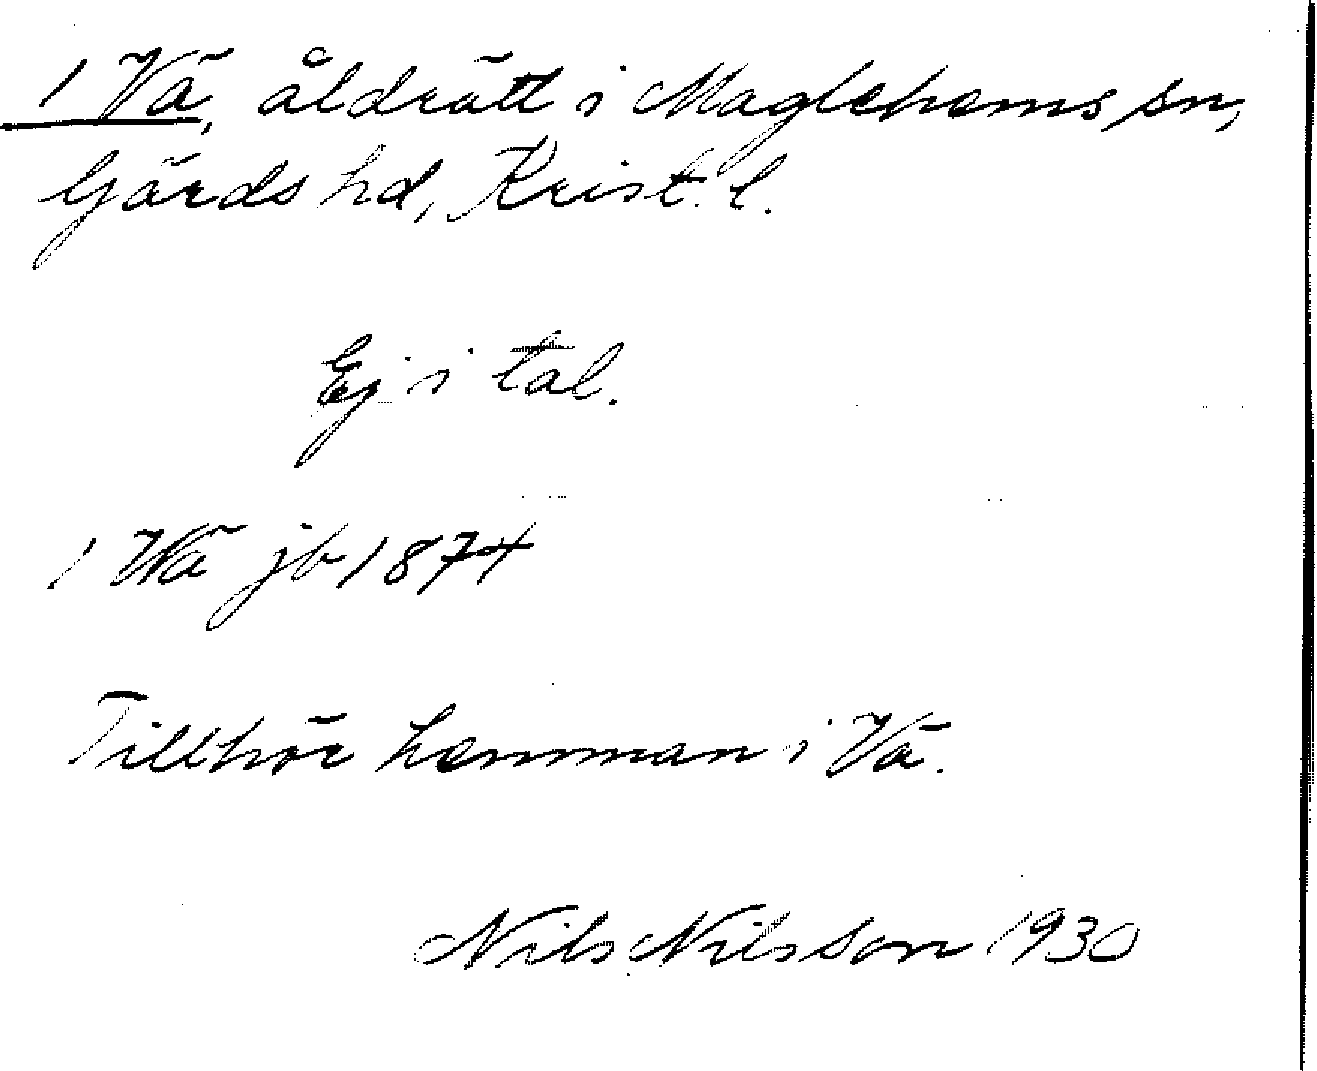 1 Vä, åldrätt i Maglehems sn,
Gärds hd, Krist. l.
Ej i tal.
1 Wä jb 1874
Tillhör hemman i Vä.
Nils Nilsson 1930